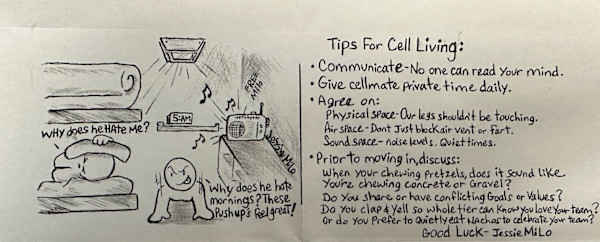 FREE
Milo
5:AM
Jessie Milo
WHY does he HAte Me?
Why does he hate
mornings? These
Pushup's Feel great!
Tips For Cell Living:
• Communicate-No one can read your mind.
• Give cellmate private time daily.
• Agree on:
Physical space-Our legs shouldn't be touching.
Air space-Dont Just block air vent or fart.
Sound space-noise levels. Quiet times.
• Prior to moving in, discuss:
When your chewing Pretzels, does it sound like
You're chewing concrete or Gravel?
Do you share or have conflicting Goals or Values?
Do you clap & Yell so whole tier can Know you Love your team?
Or do you Prefer to Quietly eat Nachos to celebrate your team?
GOOD LUCK-Jessie MiLo